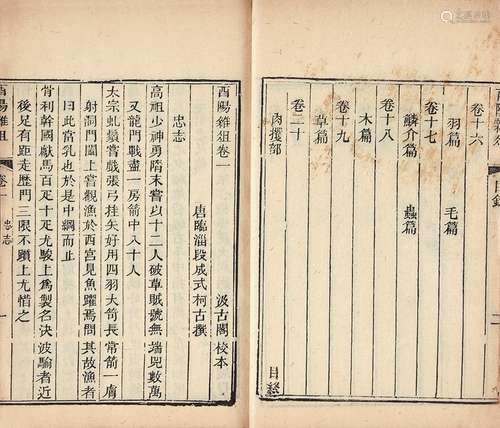 卷十六
羽篇　毛篇
卷十七
鱗介篇　蟲篇
卷十八
木篇
卷十九
草篇
卷二十
肉攫部
目終
酉陽雜俎卷一　汲古閣校本
唐臨淄段成式柯古撰
忠志
高祖少神勇隋末嘗以十二人破草賊號無端兒數萬
又龍門戰盡一房箭中八十人
太宗虬鬚嘗戲張弓挂矢好用四羽大笴長常箭一膚
射洞門闔上嘗觀漁於西宮見魚躍焉問其故漁者
曰此當乳也於是中網而止
骨利幹國獻馬百疋十疋尤駿上爲製名決波騟者近
後足有距走歷門三限不躓上尤惜之
酉陽雜俎　卷一　忠志